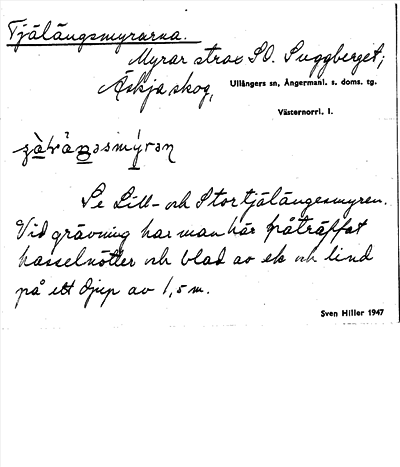 Tjälängsmyrarna.
Myrar strax SO. Suggberget;
Äskja skog, Ullångers sn, Ångermanl. s. doms. tg.
Västernorrl. l.
Se Lill- och Stortjälängesmyren.
Vid grävning har man här påträffat
hasselnötter och blad av ek och lind
på ett djup av 1,5 m.
Sven Hiller 1947